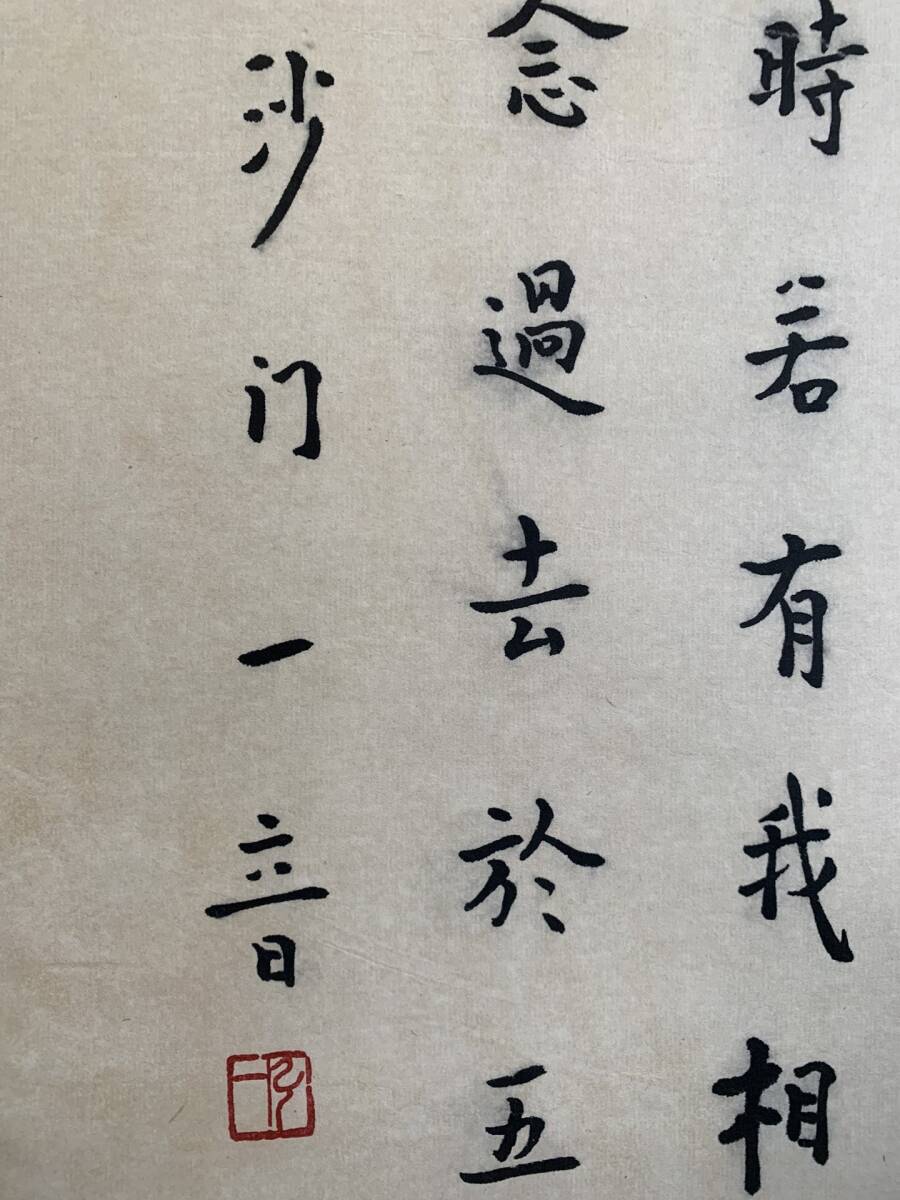 時若有我相
念過去於五
沙门一音